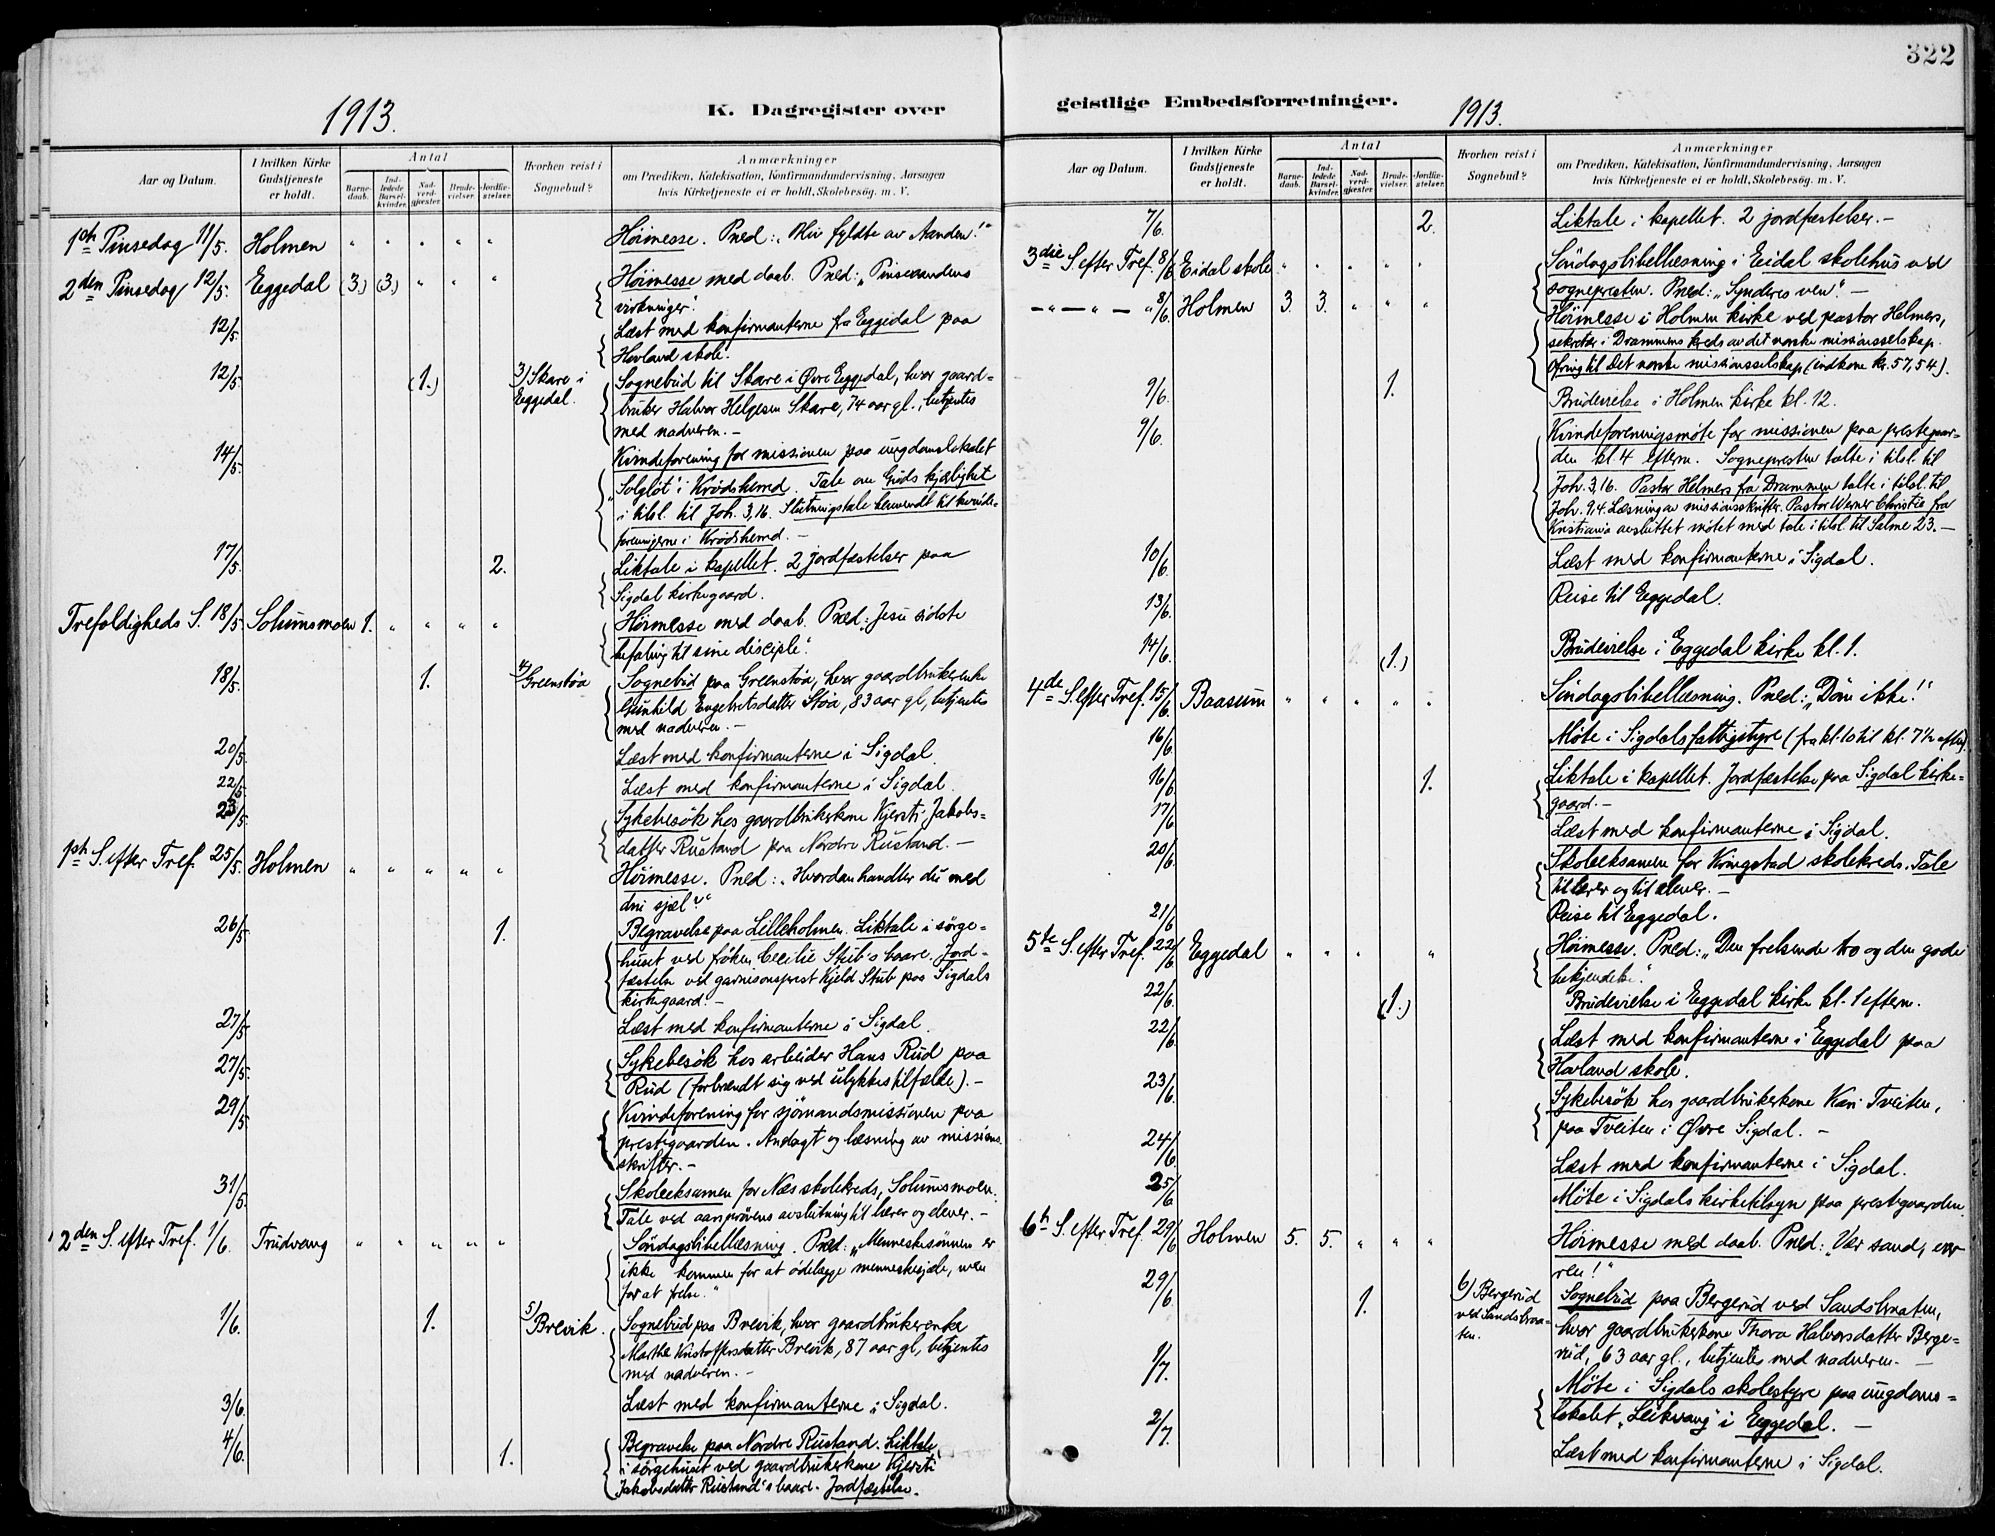 322
1913.
K. Dagregister over
geistlige Embedsforretninger.
1913.
Aar og Datum.
I hvilken Kirke
Gudstjeneste
er holdt.
Antal
Barne-
daab.
Ind-
ledede
Barsel-
kvinder.
Nad-
verd-
gjæster.
Brude-
vielser.
Jordfæ-
stelser.
Hvorhen reist i
Sognebud?
Anmærkninger
om Prædiken, Katekisation, Konfirmandundervisning, Aarsagen
hvis Kirketjeneste ei er holdt, Skolebesøg. m. V.
1ste Pinsedag 11/5. Holmen " " " " " Høimesse. Præd: "Bliv fyldte av Aanden!"
2den Pinsedag 12/5. Eggedal (3.) (3.) " " " Høimesse med daab. Præd: "Pinseaandens
virkninger".
12/5. Læst med konfirmanterne fra Eggedal paa
Hovland skole.
12/5. (1.) 3) Skare i Sognebud til Skare i Øvre Eggedal, hvor gaard-
Eggedal. bruker Halvor Helgesen Skare, 74 aar gl., betjentes
med nadveren. –
14/5. Kvindeforening for missionen paa ungdomslokalet
"Solgløt" i Krødsherred. Tale om Guds kjærlighet
i tilsl. til Joh. 3,16. Slutningstale henvendt til kvinde-
foreningerne i Krødsherred. –
17/5. 2. Liktale i kapellet. 2 jordfæstelser paa
Sigdal kirkegaard.
Trefoldigheds S. 18/5. Solumsmoen 1. " " " " Høimesse med daab. Præd: "Jesu sidste
befaling til sine disciple".
18/5. 1. 4) Greenstøa Sognebud paa Greenstøa, hvor gaardbrukerenke
Gunhild Engebretsdatter Støa, 83 aar gl., betjentes
med nadveren. –
20/5. Læst med konfirmanterne i Sigdal.
22/5. Læst med konfirmanterne i Sigdal.
23/5. Sykebesøk hos gaardbrukerkone Kjersti Jakobs-
datter Rustand paa Nordre Rustand. –
1ste S. efter Tref. 25/5. Holmen " " " " " Høimesse. Præd: "Hvordan handler du med
din sjæl?"
26/5. 1. Begravelse paa Lilleholmen. Liktale i sørge-
huset ved frøken Cecilie Stub's baare. Jord-
fæstelse ved garnisonsprest Kjeld Stub paa Sigdals
kirkegaard. –
27/5. Læst med konfirmanterne i Sigdal.
27/5. Sykebesøk hos arbeider Hans Rud paa
Rud (forbrændt sig ved ulykkestilfælde). –
29/5. Kvindeforening for sjømandsmissionen paa
prestegaarden. Andagt og læsning av missions-
skrifter. –
31/5. Skoleeksamen for Næs skolekreds, Solumsmoen.
Tale ved aarsprøvens avslutning til lærer og elever. –
2den S. efter Tref. 1/6. Trudvang " " " " " Søndagsbibellæsning. Præd: "Menneskesønnen er
ikke kommen for at ødelægge menneskesjæle, men
for at frelse."
1/6. 1. 5) Brevik. Sognebud paa Brevik, hvor gaardbrukerenke
Marthe Kristoffersdatter Brevik, 87 aar gl., betjentes
med nadveren. –
3/6. Læst med konfirmanterne i Sigdal.
4/6. 1. Begravelse paa Nordre Rustand. Liktale
i sørgehuset ved gaardbrukerkone Kjersti
Jakobsdatter Rustand's baare. Jordfæstelse.
Aar og Datum.
I hvilken Kirke
Gudstjeneste
er holdt.
Antal
Barne-
daab.
Ind-
ledede
Barsel-
kvinder.
Nad-
verd-
gjæster.
Brude-
vielser.
Jordfæ-
stelser.
Hvorhen reist i
Sognebud?
Anmærkninger
om Prædiken, Katekisation, Konfirmandundervisning, Aarsagen
hvis Kirketjeneste ei er holdt, Skolebesøg. m. V.
7/6. 2. Liktale i kapellet. 2 jordfæstelser. –
3die S. efter Tref. 8/6. Eidal skole " " " " " Søndagsbibellæsning i Eidal skolehus ved
sognepresten. Præd: "Synderes ven". –
– " – " – " 8/6. Holmen 3. 3. " " " Høimesse i Holmen kirke ved pastor Helmers,
sekretær i Drammens kreds av det norske missionsselskap.
Ofring til Det norske missionsselskap (indkom kr. 57,54).
9/6. 1. Brudevielse i Holmen kirke kl. 12.
9/6. Kvindeforeningsmøte for missionen paa prestegaar-
den kl. 4 efterm. Sognepresten talte i tilsl. til
Joh. 3,16. Pastor Helmers fra Drammen talte i tilsl. til
Joh. 9,4. Læsning av missionsskrifter. Pastor Werner Christie fra
Kristiania avsluttet møtet med tale i tilsl. til Salme 23. –
10/6. Læst med konfirmanterne i Sigdal.
13/6. Reise til Eggedal.
14/6. (1.) Brudevielse i Eggedal kirke kl. 1.
4de S. efter Tref. 15/6. Baasum " " " " " Søndagsbibellæsning. Præd: "Døm ikke!"
16/6. Møte i Sigdals fattigstyre (fra kl. 10 til kl. 7½ efterm.)
16/6. 1. Liktale i kapellet. Jordfæstelse paa Sigdal kirke-
gaard. –
17/6 Læst med konfirmanterne i Sigdal.
20/6. Skoleeksamen for Kringstad skolekreds. Tale
til lærer og til elever. –
21/6 Reise til Eggedal.
5te S. efter Tref. 22/6. Eggedal " " " " Høimesse. Præd: "Den frelsende tro og den gode
bekjendelse".
22/6. (1.) Brudevielse i Eggedal kirke kl. 1 efterm.
22/6. Læst med konfirmanterne i Eggedal paa
Hovland skole.
23/6. Sykebesøk hos gaardbrukerkone Kari Tveiten,
paa Tveiten i Øvre Sigdal. –
24/6. Læst med konfirmanterne i Sigdal.
25/6 Møte i Sigdals kirketilsyn paa prestgaarden.
6te S. efter Tref. 29/6. Holmen 5. 5. " " " Høimesse med daab. Præd: "Vær sand, vær
ren!"
29/6. 1. 6) Bergerud Sognebud paa Bergerud ved Sandsbraaten,
ved Sandsbraa- hvor gaardbrukerkone Thora Halvorsdatter Berge-
ten. rud, 63 aar gl., betjentes med nadveren. –
1/7. Møte i Sigdals skolestyre paa ungdoms-
lokalet "Leikvang" i Eggedal. –
2/7. Læst med konfirmanterne i Sigdal.